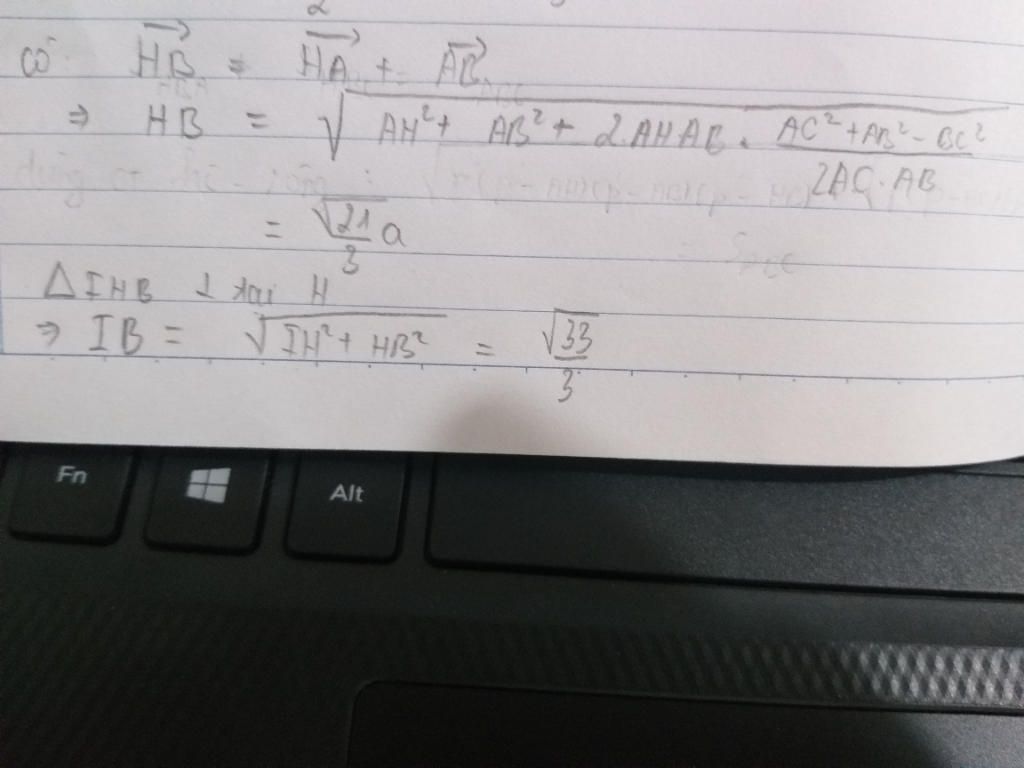 2
có \overrightarrow{HB} = \overrightarrow{HA} + \overrightarrow{AB}
⇒ HB = \sqrt{AH² + AB² + 2.AH.AB . \frac{AC² + AB² - BC²}{2AC.AB}}
= \frac{\sqrt{21}}{3} a
Δ IHB ⊥ tại H
⇒ IB = \sqrt{IH² + HB²} = \frac{\sqrt{33}}{3}
Fn Alt